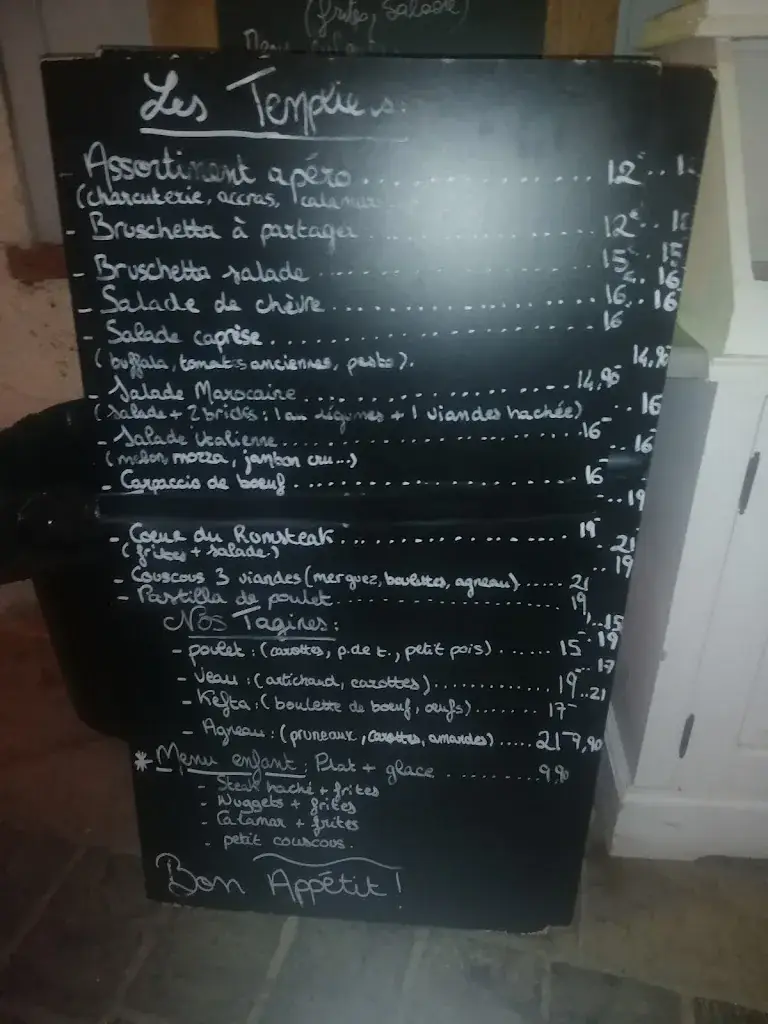 (frites, Salade)
Menu enfant
Les Templiers:
- Assortiment apéro.......12€
(charcuterie, accras, calamar
- Bruschetta à partager.......12€
- Bruschetta salade.......15€
- Salade de chèvre.......16
- Salade caprise.......16
(buffala, tomates anciennes, pesto).
- Salade Marocaine.......14,90
(salade + 2 bricks: 1 au légumes + 1 viandes hachée)
- Salade Italienne.......16
(melon, mozza, jambon cru...)
- Carpaccio de boeuf.......16
- Coeur du Romsteak.......19
(frites + salade)
- Couscous 3 viandes (merguez, boulettes, agneau).......21
- Pastilla de poulet.......19
Nos Tagines:
- poulet: (carottes, p.de t., petit pois).......15
- Veau: (artichaud, carottes).......19
- Kefta: (boulette de boeuf, oeufs).......17
- Agneau: (pruneaux, carottes, amandes).......21
* Menu enfant: Plat + glace.......9,90
- Steak haché + frites
- Nuggets + frites
- Calamar + frites
- petit couscous.
Bon Appétit!